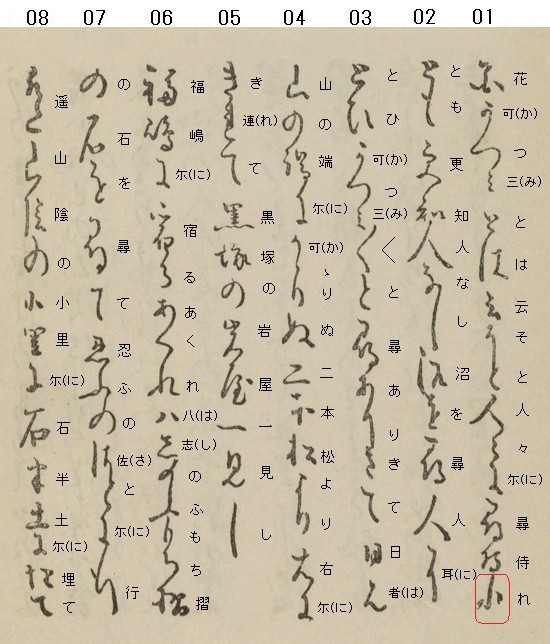 01
花可(か)つ三(み)とは云そと人々尓(に)尋侍れ
02
とも更知人なし沼を尋人耳(に)
03
とひ可(か)つ三(み)〱と尋ありきて日者(は)
04
山の端尓(に)可(か)ゝりぬ二本松より右尓(に)
05
き連(れ)て黒塚の岩屋一見し
06
福嶋尓(に)宿るあくれ八(は)志(し)のふもち摺
07
の石を尋て忍ふの佐(さ)と尓(に)行
08
遥山陰の小里尓(に)石半土尓(に)埋て